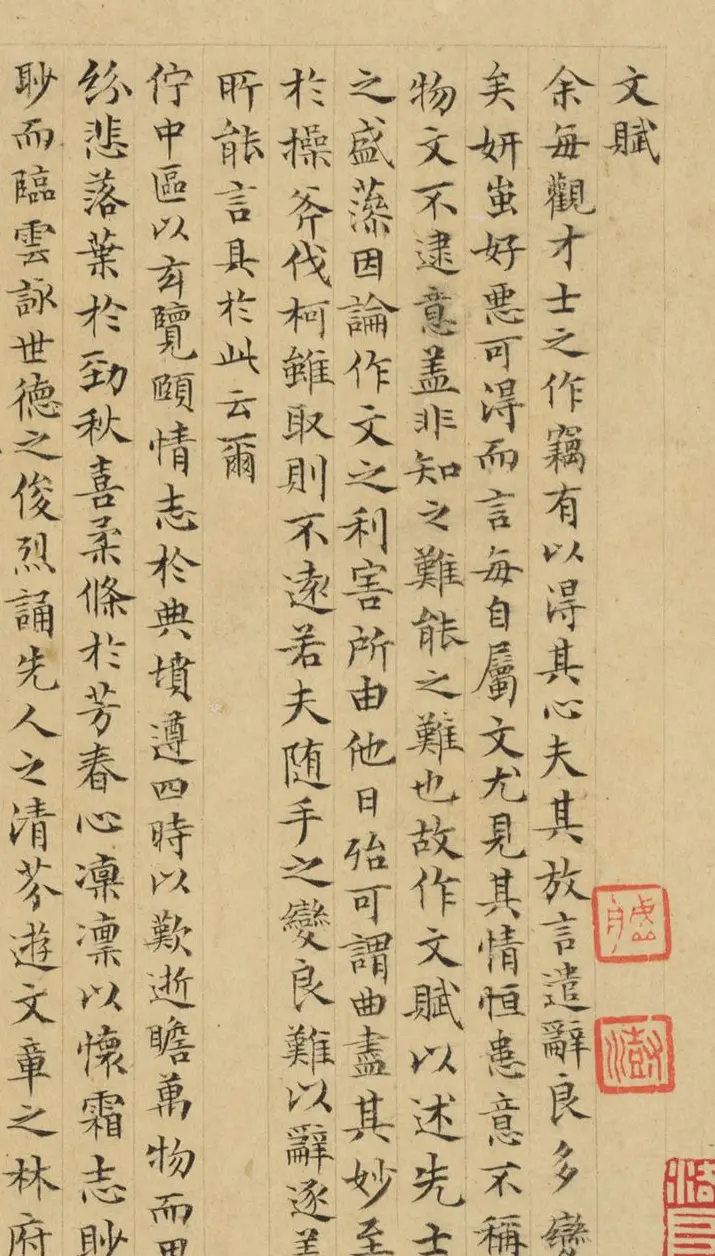 文賦
余每觀才士之作竊有以得其心夫其放言遣辭良多變
矣妍蚩好惡可得而言每自屬文尤見其情恒患意不稱
物文不逮意盖非知之難能之難也故作文賦以述先士
之盛藻因論作文之利害所由他日殆可謂曲盡其妙至
於操斧伐柯雖取則不遠若夫随手之變良難以辭逐盖
所能言具於此云爾
佇中區以玄覽頤情志於典墳遵四時以歎逝瞻萬物而思
紛悲落葉於勁秋喜柔條於芳春心凜凜以懷霜志眇
眇而臨雲詠世德之俊烈誦先人之清芬遊文章之林府